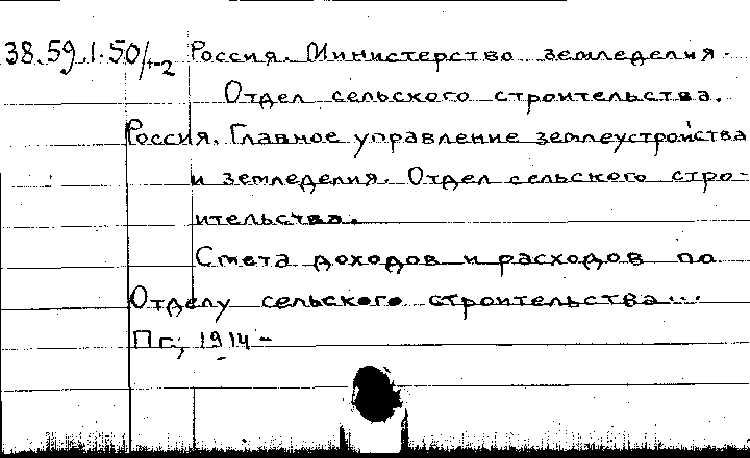 38.59.1.50/1-2 Россия. Министерство земледелия.
Отдел сельского строительства.
Россия. Главное управление землеустройства
и земледелия. Отдел сельского стро-
ительства.
Смета доходов и расходов по
Отделу сельского строительства...
Пг., 1914-